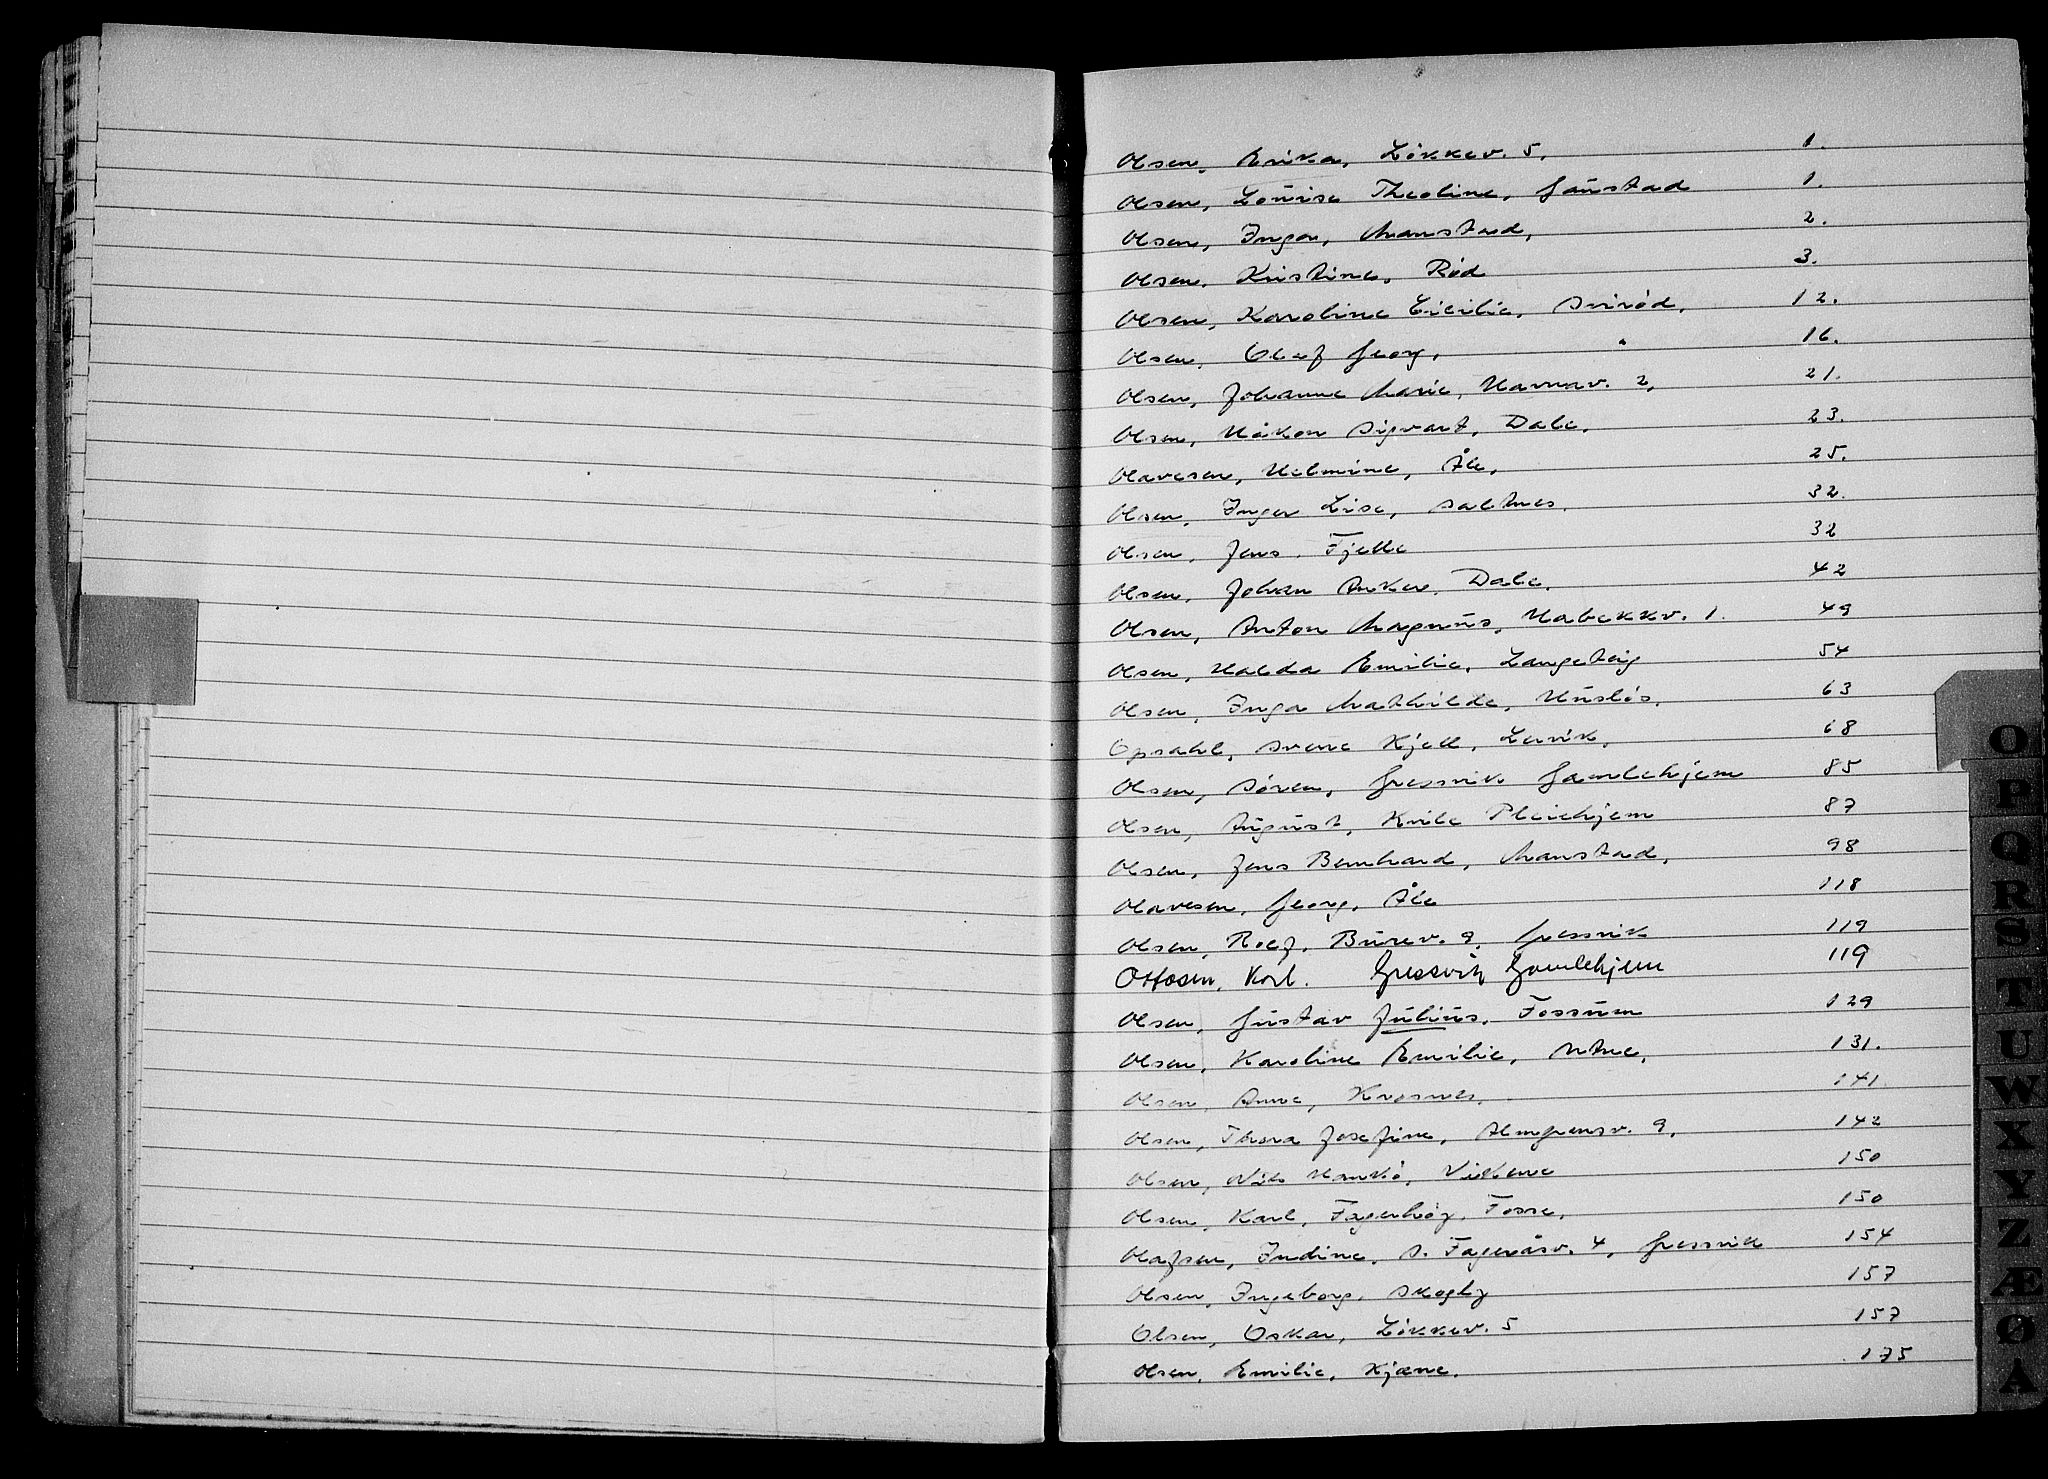 Olsen, Erika, Løkkev. 5. 1.
Olsen, Louise Theoline, Gaustad 1.
Olsen, Inga, Manstad, 2.
Olsen, Kristine, Rød 3.
Olsen, Karoline Cicilie, Svirød, 12.
Olsen, Olaf Georg, " 16.
Olsen, Johanne Marie, Havnav. 2, 21.
Olsen, Håkon Sigvart, Dale, 23.
Olavesen, Helmine, Åle, 25.
Olsen, Inger Lise, Saltnes. 32.
Olsen, Jens, Fjelle 32
Olsen, Johan Anker, Dale, 42
Olsen, Anton Magnus, Habekkv. 1. 49
Olsen, Halda Emilie, Langeteig 54
Olsen, Inga Mathilde, Husløs, 63
Opsahl, Svene Kjell, Lervik, 68
Olsen, Søren, Gressvik Gamlehjem 85
Olsen, August, Kvile Pleiehjem 87
Olsen, Jens Bernhard, Manstad, 98
Olavesen, Georg, Åle 118
Olsen, Rolf, Burev. 9, Gressvik 119
Ottosen, Karl. Gressvik Gamlehjem 119
Olsen, Gustav Julius, Fossum 129
Olsen, Karoline Emilie, Utne, 131.
Olsen, Anne, Krosnes, 141
Olsen, Thora Josefine, Almgrensv. 9, 142
Olsen, Nils Hankø, Vikene 150
Olsen, Karl, Fagerhøy, Fosse, 150
Olafsen, Indine, S. Fageråsv. 4, Gressvik 154
Olsen, Ingeborg, Skogly 157
Olsen, Oskar, Løkkev. 5 157
Olsen, Emilie, Kjæne. 175
O
P
Q
R
S
T
U
W
X
Y
Z
Æ
Ø
A